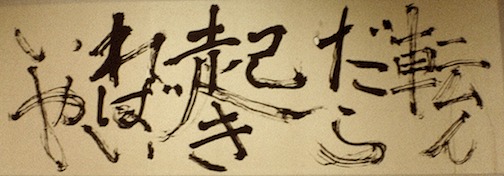 転ん
だら
起き
ればい
いや